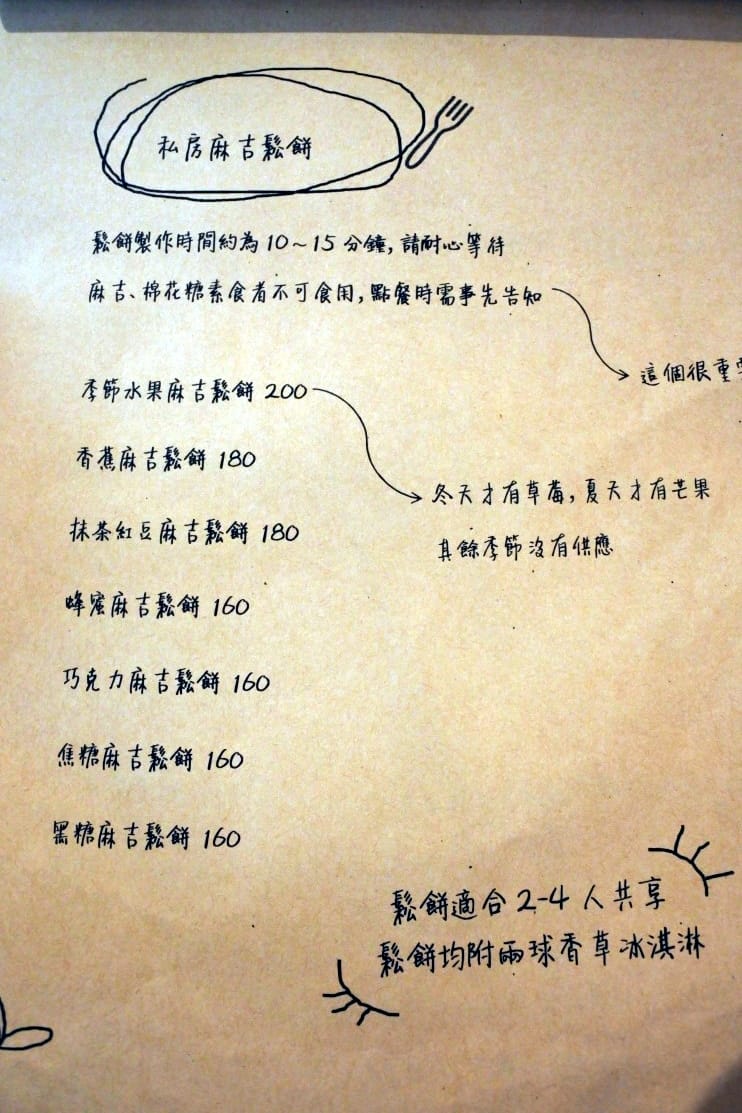 私房麻吉鬆餅
鬆餅製作時間約為10~15分鐘,請耐心等待
麻吉、棉花糖素食者不可食用,點餐時需事先告知
這個很重
季節水果麻吉鬆餅 200
香蕉麻吉鬆餅 180
冬天才有草莓,夏天才有芒果
抹茶紅豆麻吉鬆餅 180
其餘季節沒有供應
蜂蜜麻吉鬆餅 160
巧克力麻吉鬆餅 160
焦糖麻吉鬆餅 160
黑糖麻吉鬆餅 160
鬆餅適合2-4人共享
鬆餅均附兩球香草冰淇淋